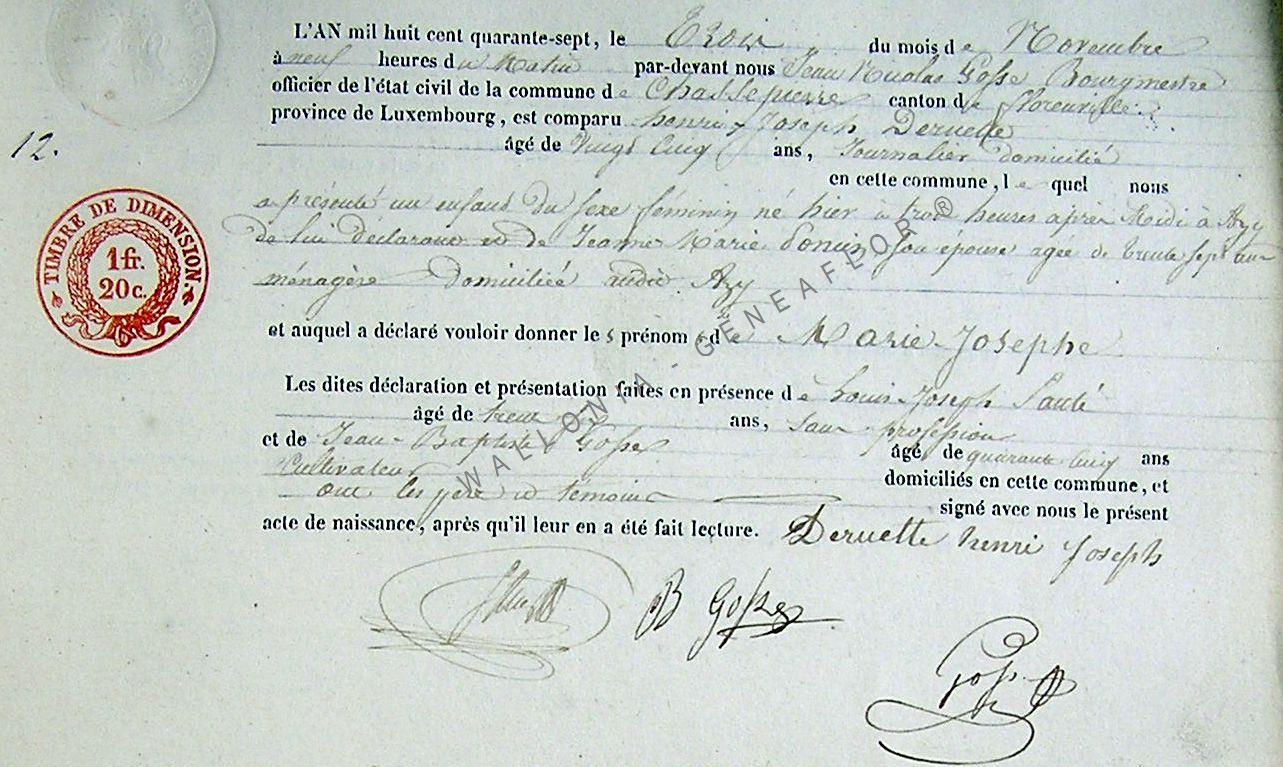 L'AN mil huit cent quarante-sept, le Trois du mois de Novembre
à neuf heures du Matin par-devant nous Jean Nicolas Gosse Bourgmestre
officier de l'état civil de la commune de Chassepierre canton de florenville
province de Luxembourg, est comparu henri Joseph Deruette
12.
âgé de Vingt Cinq ans, Journalier domicilié
en cette commune, le quel nous
a présenté un enfant du sexe féminin né hier à trois heures après Midi à Azy
de lui déclarant et de Jeanne Marie Poncin son épouse agée de trente sept ans
ménagère domiciliée audit Azy
et auquel a déclaré vouloir donner les prénoms de Marie-Josephe
Les dites déclaration et présentation faites en présence de Louis-Joseph
âgé de ans, sans profession
et de Jean-Baptiste Gosse âgé de quarante cinq ans
Cultivateur domiciliés en cette commune, et
ont les père et témoins signé avec nous le présent
acte de naissance, après qu'il leur en a été fait lecture. Deruette henri Joseph
B Gosse
Gosse
TIMBRE DE DIMENSION.
1 fr.
20 c.
WALLONIA - GENEAFLOR ®